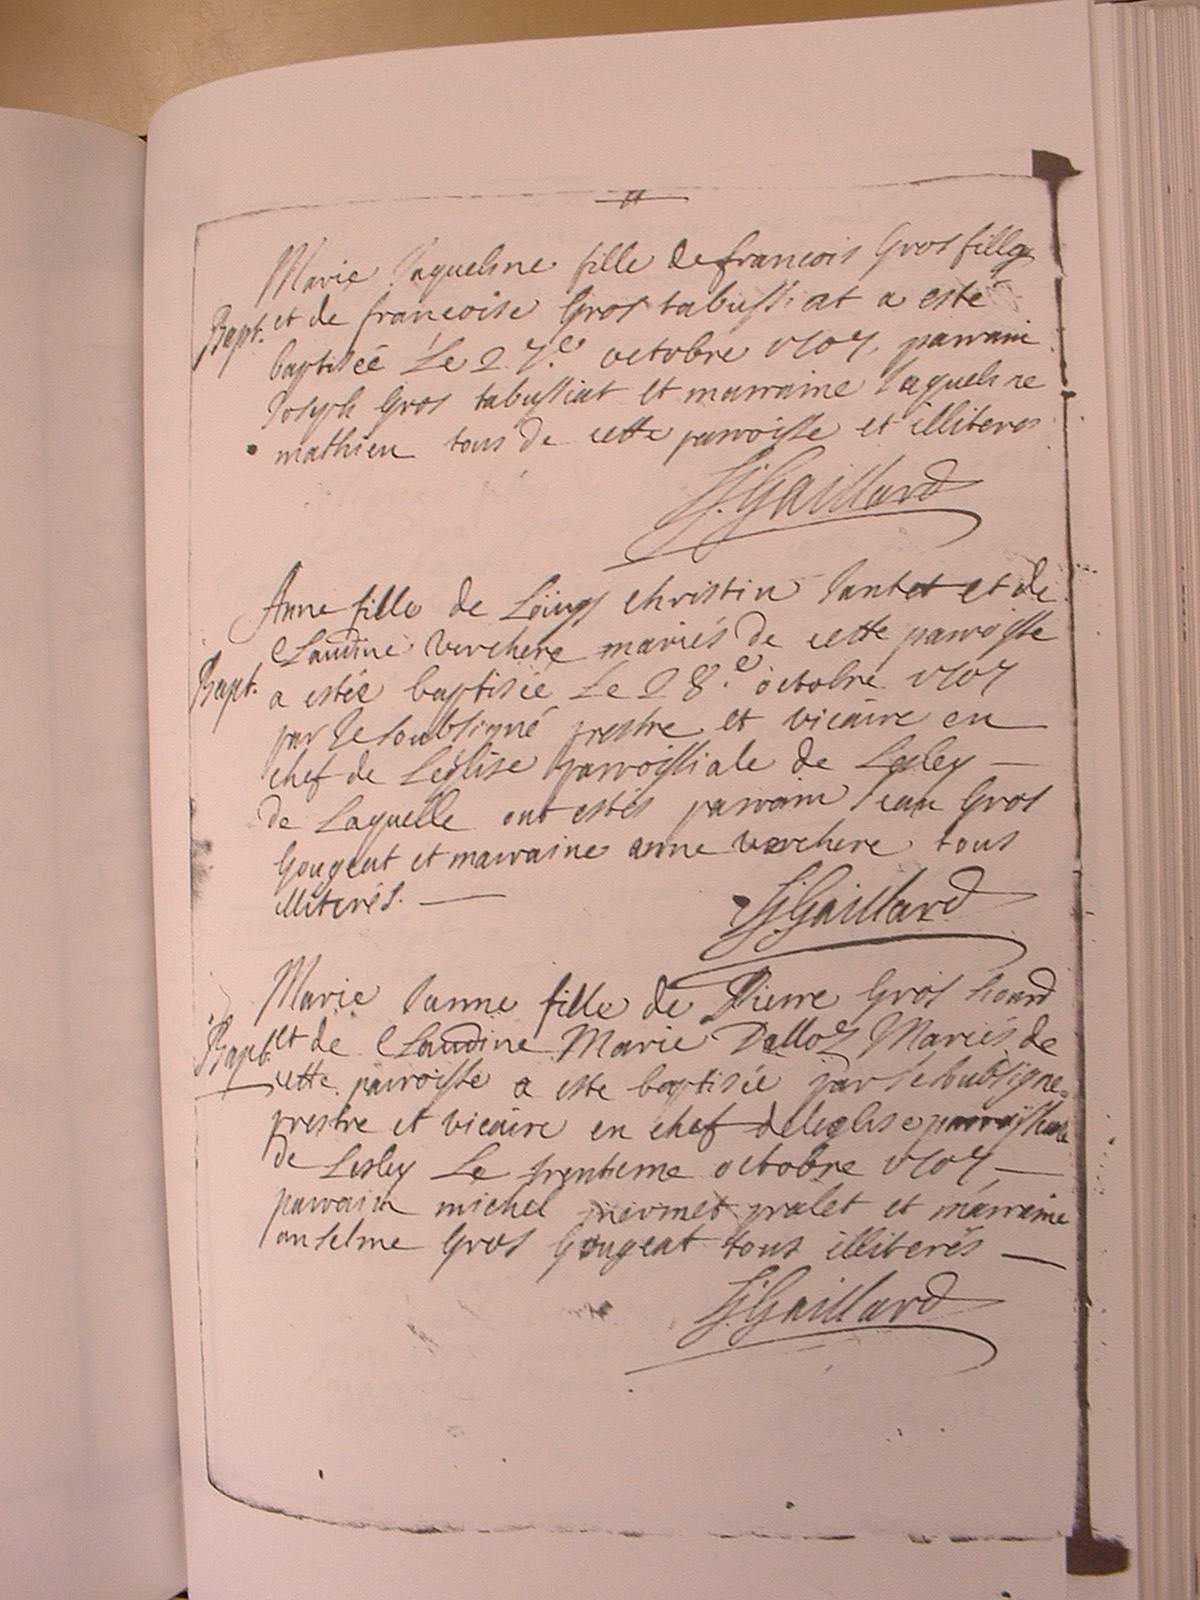 Marie Jaqueline fille de francois Gros fillog
Bapt. et de francoise Gros tabussiat a esté
baptisée Le 27.e octobre 1707. parrain
Joseph Gros tabussiat et marraine Jaqueline
mathieu tous de cette parroisse et illiteres
J. Gaillard
Anne fille de Loüys christin Jantet et de
Claudine verchere mariés de cette parroisse
Bapt. a estée baptisée Le 28.e octobre 1707
par Je soubsigné prestre et vicaire en
chef de Leglise parroissiale de Lesley —
de Laquelle ont estés parrain Jean Gros
Gougeat et marraine anne verchere tous
illiterés. —
J. Gaillard
Marie Janne fille de Pierre Gros
Bapt. et de Claudine Marie Dalloz Mariés de
cette parroisse a este baptisée par Je soubsigne
prestre et vicaire en chef de leglise parroissiale
de Lesley Le trentieme octobre 1707 —
parrain michel prermet pralet et marraine
anselme Gros Gougeat tous illiterés —
J. Gaillard